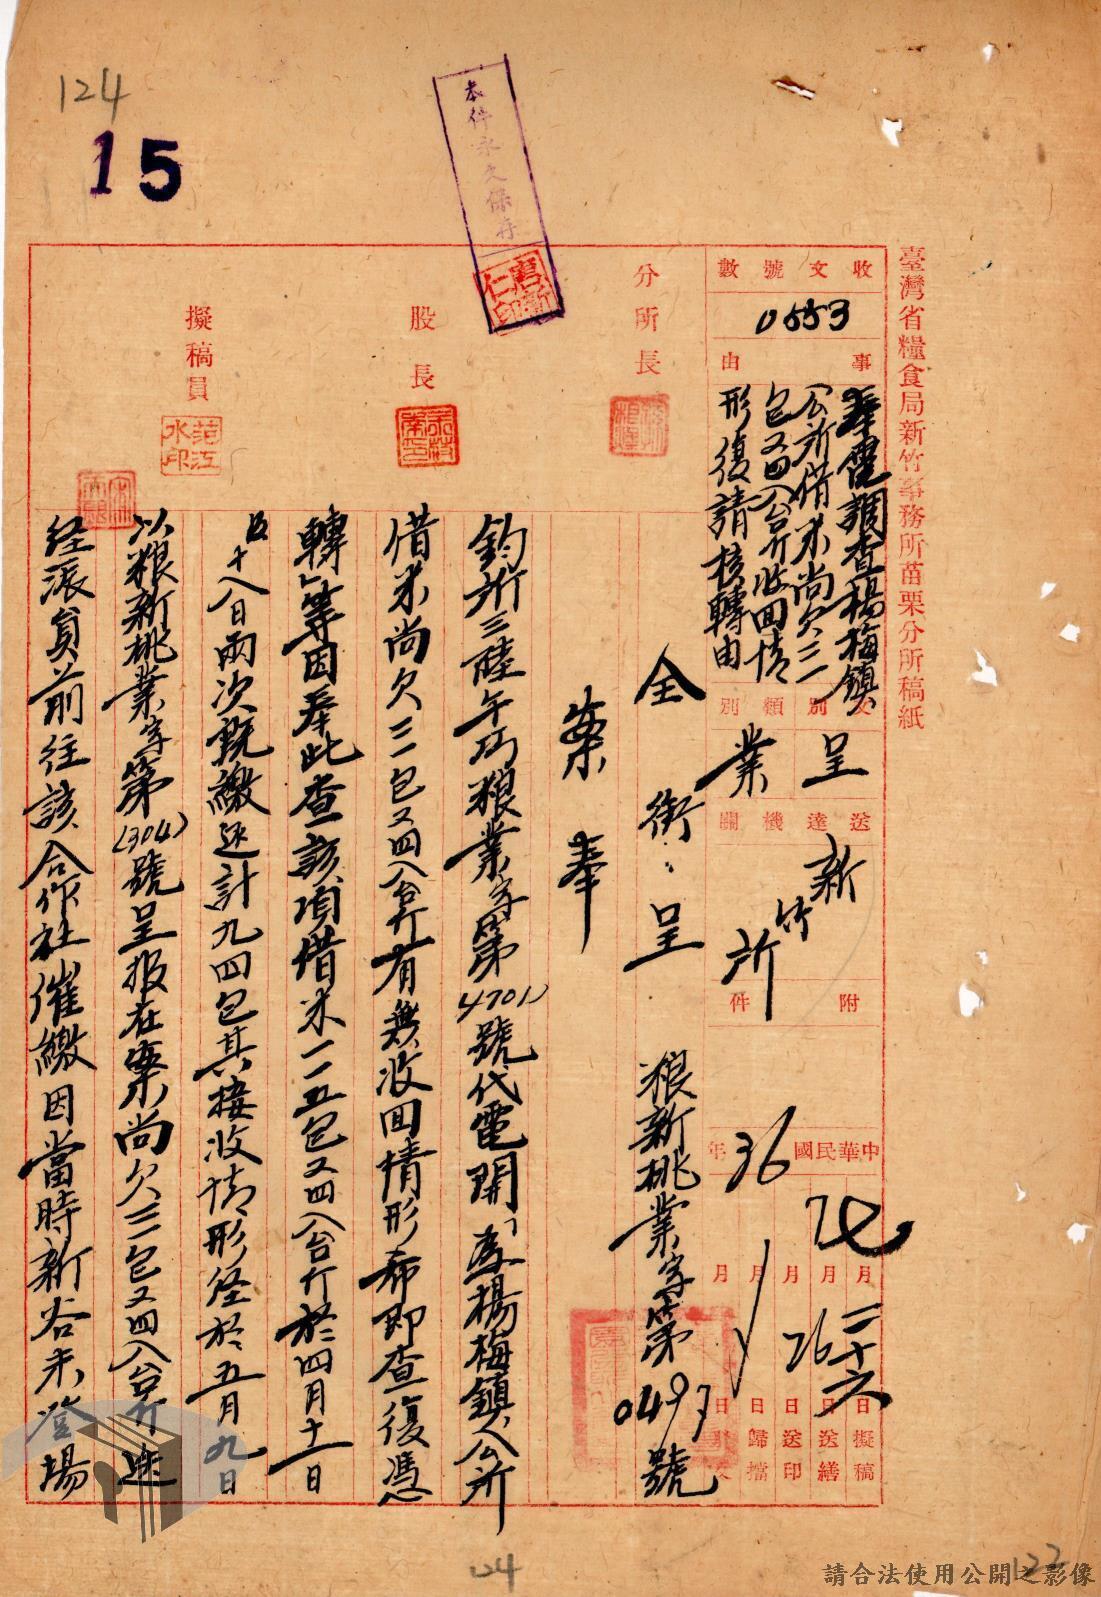 124
15
本件永久保存
臺灣省糧食局新竹事務所苗栗分所稿紙
收文號數
0553
事由
奉電調查楊梅鎮
公所借米尚欠三一
包又四八台斤收回情
形復請核轉由
文別
呈
類別
業
送達機關
新竹所
附件
中華民國36年
七月二十六日擬稿
月日送繕
月26日送印
月日歸檔
月日
分所長
股長
擬稿員
范江水印
全銜呈 粮新桃業字第0497號
案奉
鈞所三陸午巧粮業字第4701號代電開「為楊梅鎮公所
借米尚欠三一包又四八台斤有無收回情形希即查復憑
轉」等因奉此查該項借米一二五包又四八台斤於四月十一日
十八日兩次既繳還計九四包其接收情形經於五月九日
以粮新桃業字第(304)號呈报在案尚欠三一包又四八台斤迭
经派員前往該合作社催繳因當時新谷未登場
124
122
請合法使用公開之影像